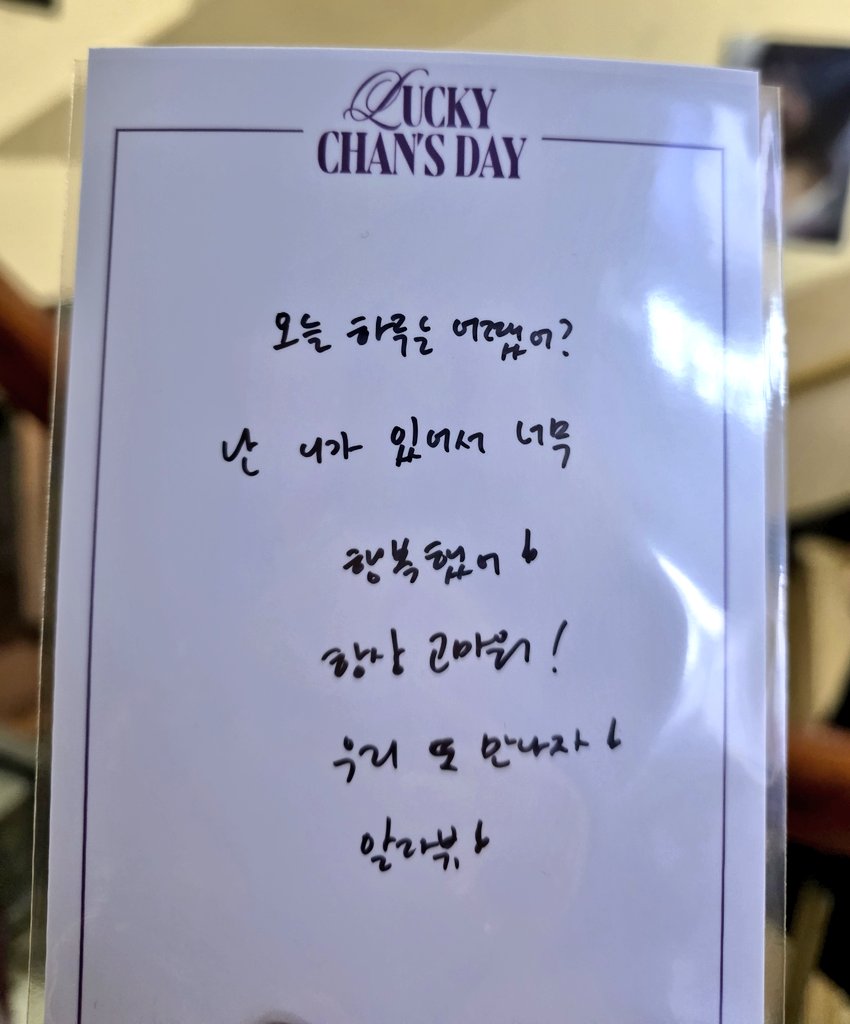 LUCKY
CHAN'S DAY
오늘 하루는 어땠어?
난 니가 있어서 너무
행복했어!
항상 고마워!
우리 또 만나자!
알라뷰!